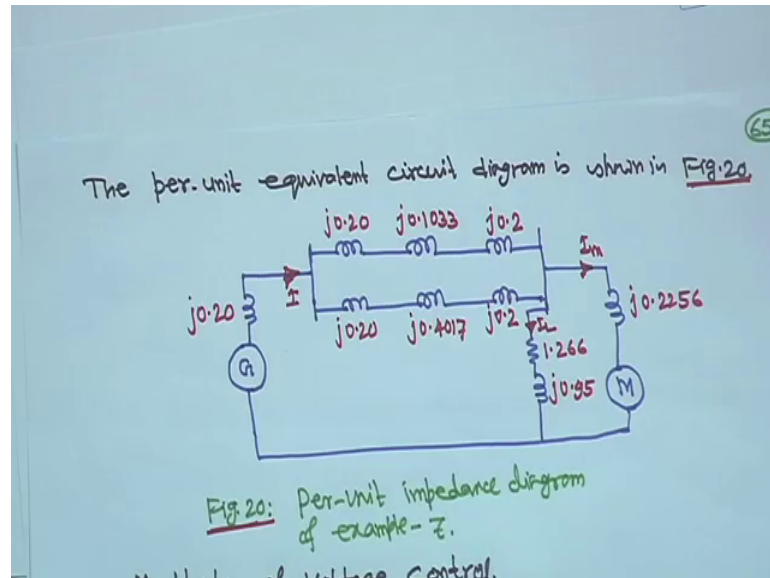 65
The per-unit equivalent circuit diagram is shown in Fig.20.
j0.20 j0.1033 j0.2
I Im
j0.20 j0.2256
j0.20 j0.4017 j0.2 IL
G 1.266
j0.95 M
Fig.20: Per-unit impedance diagram
of example-7.
of voltage control.